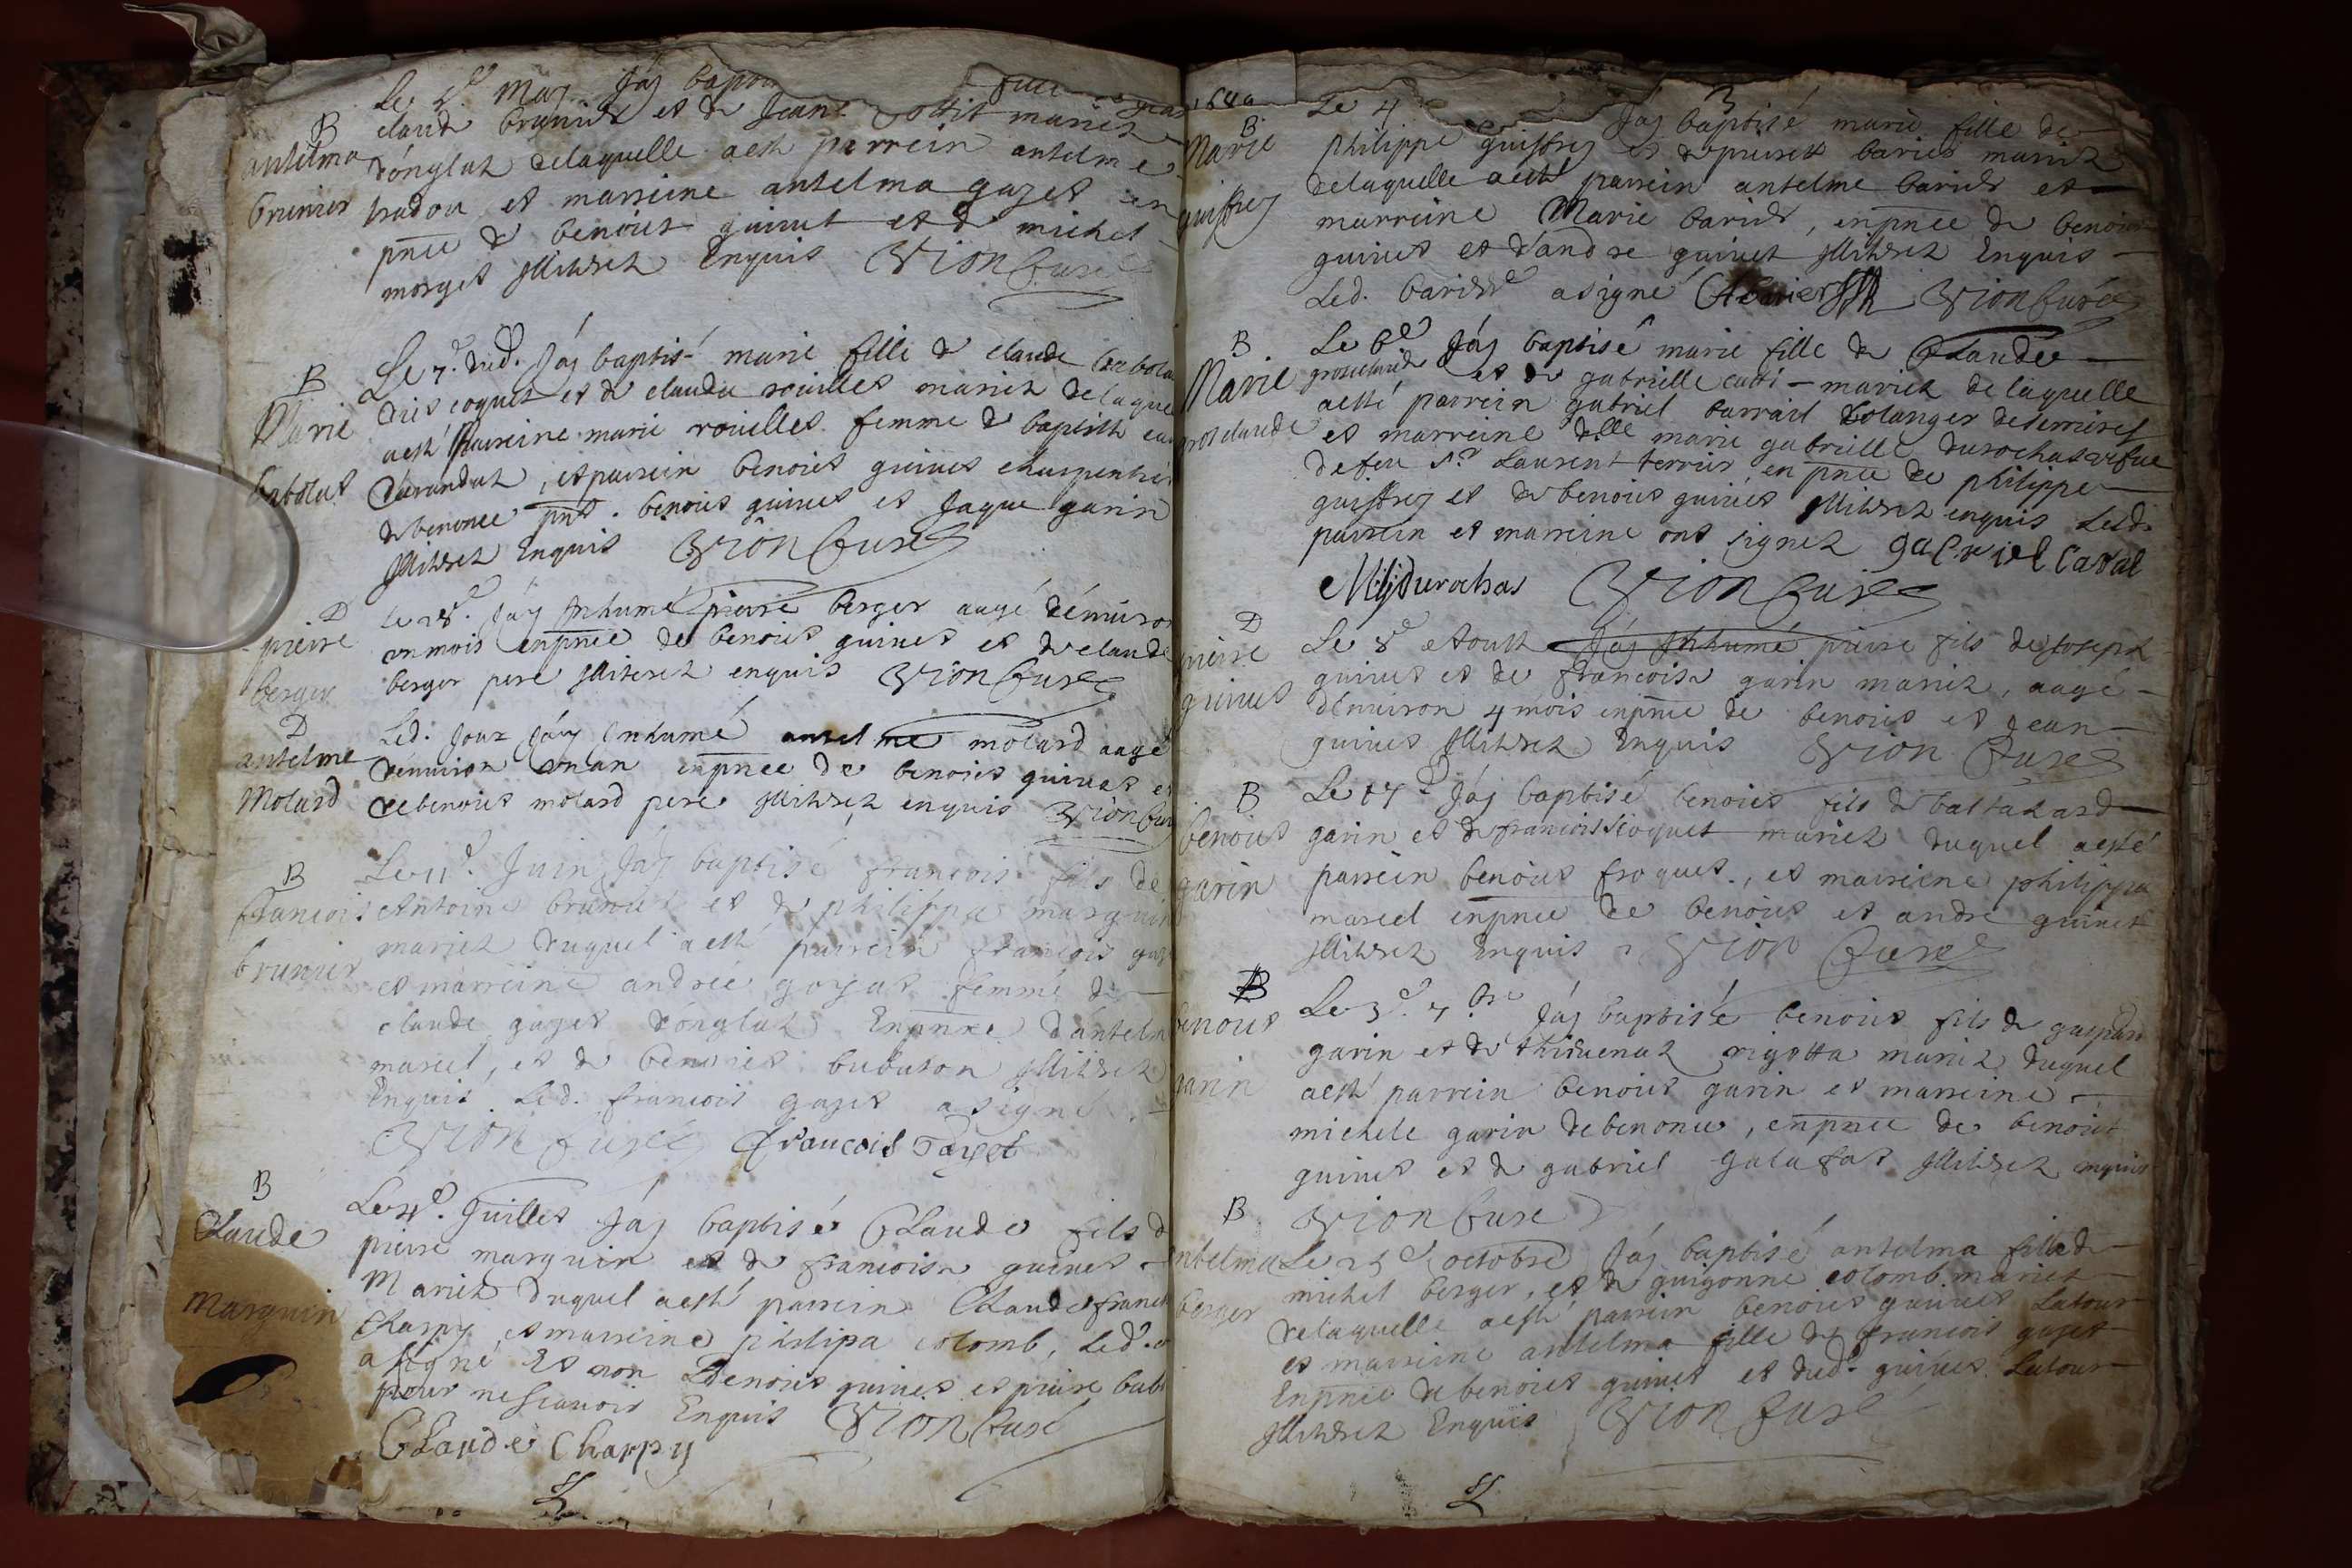 Le 2.e May Jáy bapti fille
claude brunier et de Jeane mariez
B
antelma
brunier
dónglat delaquelle aesté parrein antelme
badou et marreine antelma gajet en
pnce de benoist guinet et de michel
morget illiterez Enquis Vion Curé
B
Marie
babolat
Le 7.e dud. Jáy baptisé marie fille de claude babolat
dict coquet et de claudia rouilles mariez delaque
aesté marreine marie rouilles femme de baptiste
durandat, et parrein benoist guinet charpentier
debenonce pnt. benoist guinet et Jaque garin
illiterez Enquis Vion Curé
D
pierre
berger
Le 28.e Jáy Inhumé pierre berger aagé démiron
un mois enpnce de benoist guinet et de claude
berger pere illiterez enquis Vion Curé
D
antelme
Molard
Led. Jour Jáy Inhumé antelme molard aagé
denuiron un an enpnce de benoist guinet et
debenoist molard pere illiterez enquis Vion Cur
B
francois
brunier
Le 11.e Juin Jáy baptisé francois fils de
Antoine brunier et de philippa marguin
mariez duquel aesté parrein francois gaj
et marreine andrée goyat femme de
claude gajet dónglat Enpnce dantelm
marcel, et de benoist bubaton illiterez
Enquis Led. francois gajet a signé
Vion Curé francois Gayet
B
Claude
Marguin
Le 4.e Juillet Jáy baptisé Claude fils d
pierre marguin et de francoise guinet
Mariez duquel aesté parrein Claude franc
Charpy, et marreine philipa colomb, Led.
a signé Et non benoist guinet et pierre bab
pour nescauoir Enquis Vion Curé
Claude Charpy
B
Marie
guiffrey
Le 4 Jáy baptisé marie fille de
philippe guiffrey et de barier mariez
delaquelle aesté parrein antelme barier et
marreine Marie barier, enpnce de benoist
guinet et dandre guinet illiterez Enquis
Led. barier a signé A barier Vion Curé
B
Marie
grosclaude
Le 6.e Jáy baptisé marie fille de Claude
grosclaude et de gabrielle cutti mariez de laquelle
aesté parrein gabriel bolanger
et marreine d.lle marie gabrielle durochas vefue
defeu s.r Laurent terrier en pnce de philippe
guiffrey et de benoist guinet illiterez enquis Lesd.
parrein et marreine ont signez gabriel
M g durochas Vion Curé
D
pierre
guinet
Le 8.e Aoust Jáy Inhumé pierre fils de Joseph
guinet et de francoise garin mariez, aagé
dénuiron 4 mois enpnce de benoist et Jean
guinet illiterez Enquis Vion Curé
B
benoist
garin
Le 17.e Jáy baptisé benoist fils de baltazard
garin et de francoise froquet mariez duquel aesté
parrein benoist froquet, et marreine philippa
marcel enpnce de benoist et andre guinet
illiterez Enquis Vion Curé
B
benoist
garin
Le 3.e 7.bre Jáy baptisé benoist fils de gaspar
garin et de thieuenaz rigotta mariez duquel
aesté parrein benoist garin et marreine
michele garin debenonce, enpnce de benoist
guinet et de gabriel galafat illiterez enquis
Vion Curé
B
antelma
berger
Le 25.e octobre Jáy baptisé antelma fille de
michel berger, et de guigonne colomb mariez
delaquelle aesté parrein benoist guinet Latour
et marreine antelma fille de francois gajet
Enpnce de benoist guinet et dud. guinet Latour
illiterez Enquis Vion Curé